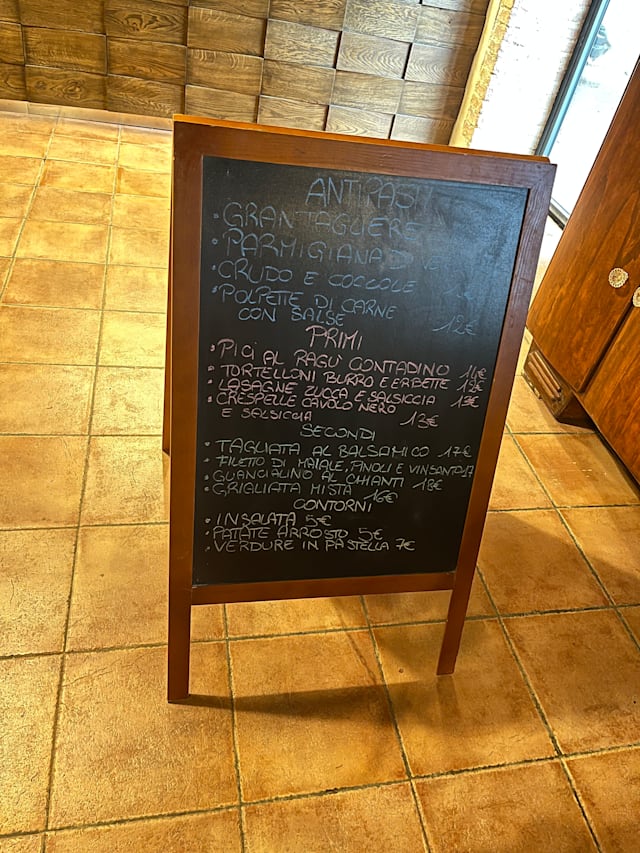 ANTIPASTI
• GRANTAGLIERE
• PARMIGIANA DI
• CRUDO E COCCOLE
• POLPETTE DI CARNE
CON SALSE 12€
PRIMI
• PICI AL RAGÙ CONTADINO 14€
• TORTELLONI BURRO E ERBETTE 12€
• LASAGNE ZUCCA E SALSICCIA 13€
• CRESPELLE CAVOLO NERO
E SALSICCIA 13€
SECONDI
• TAGLIATA AL BALSAMICO 17€
• FILETTO DI MAIALE, PINOLI E VINSANTO 17
• GUANCIALINO AL CHIANTI 18€
• GRIGLIATA MISTA 16€
CONTORNI
• INSALATA 5€
• PATATE ARROSTO 5€
• VERDURE IN PASTELLA 7€